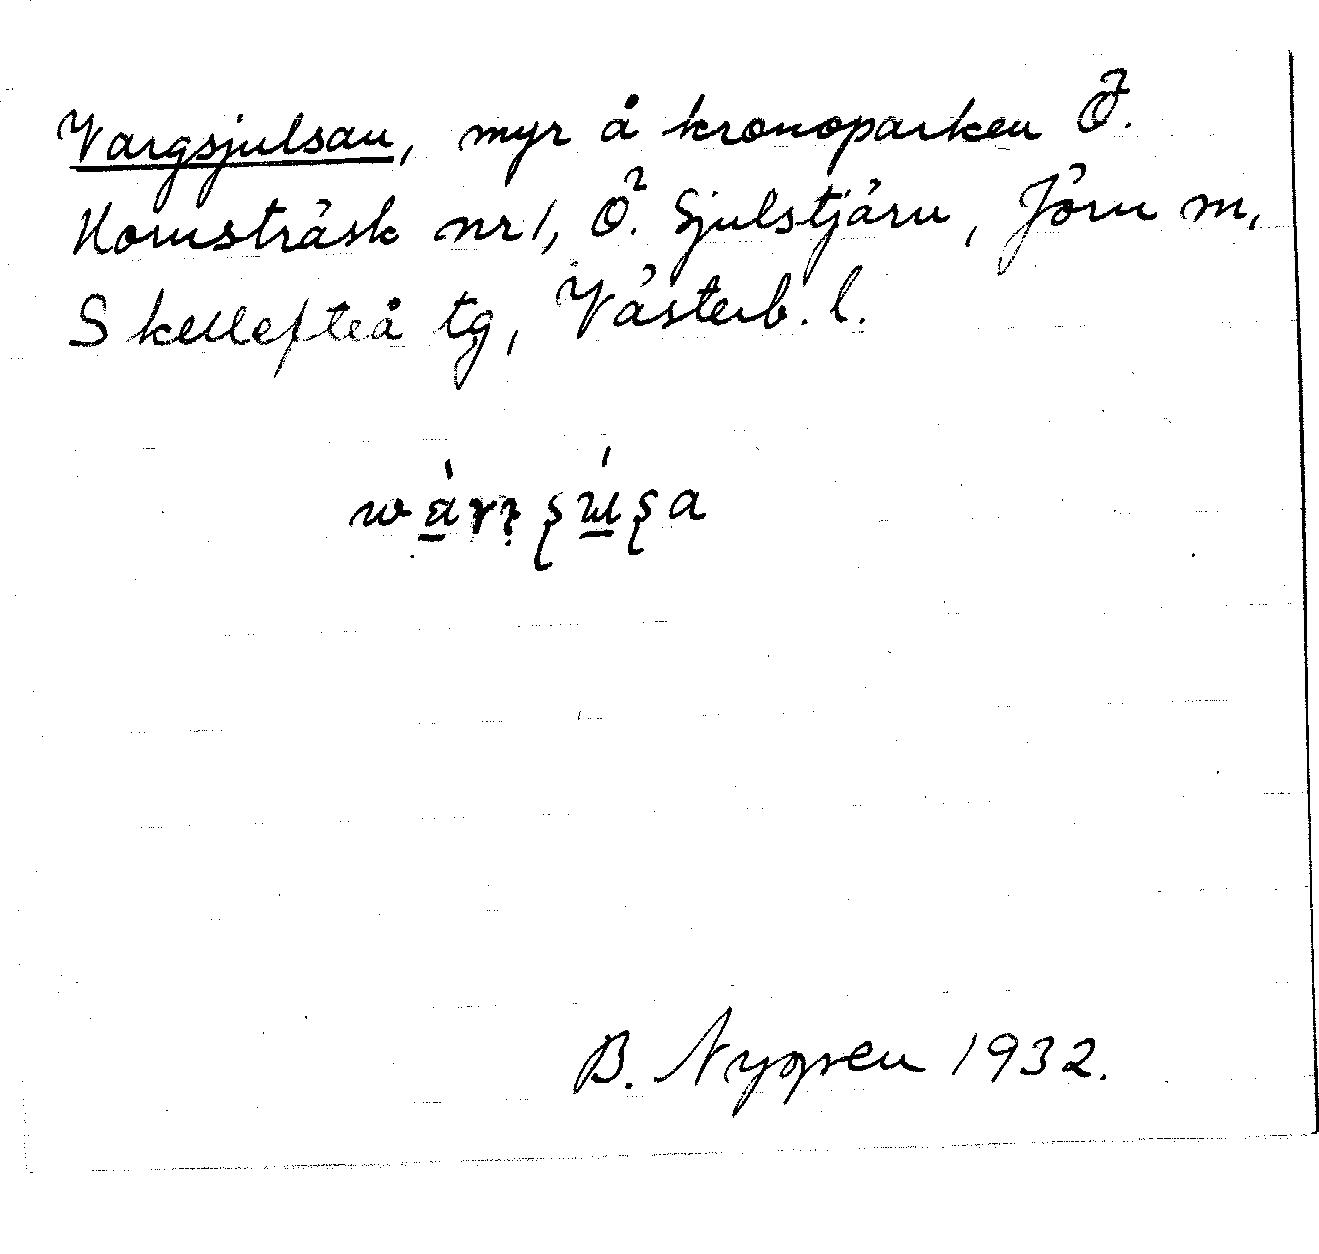 Vargsjulsan, myr å kronoparken Ö.
Hornsträsk nr 1, Ö. Sjulstjärn, Jörn sn,
Skellefteå tg, Västerb. l.
B. Nygren 1932.